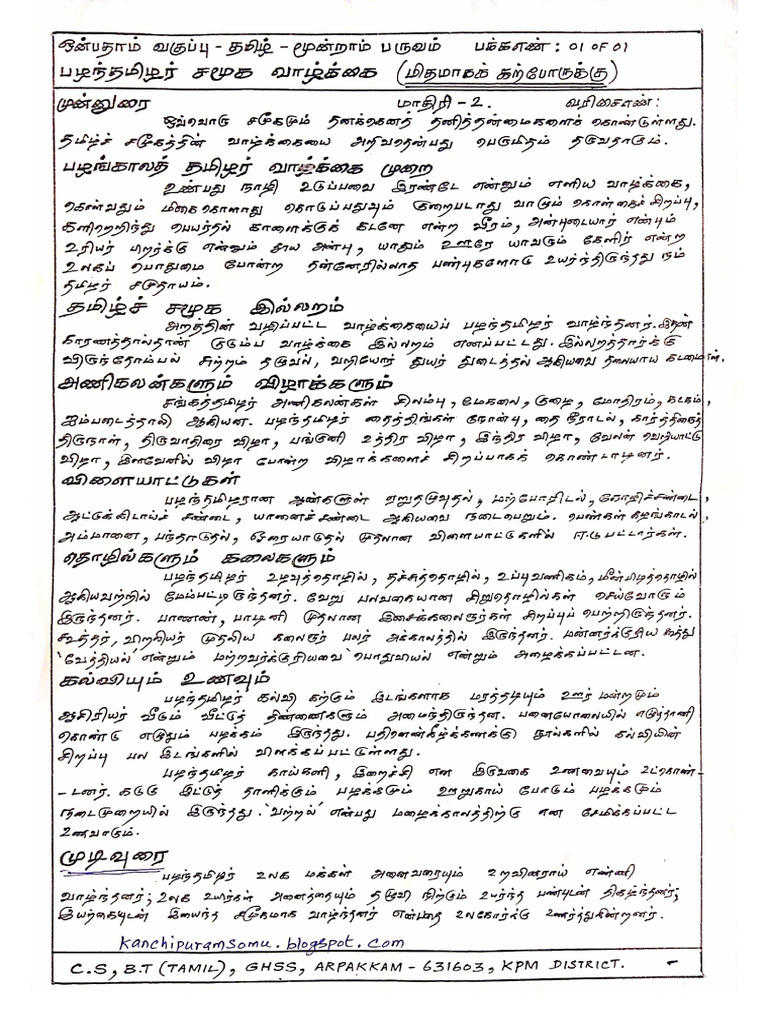 ஒன்பதாம் வகுப்பு - தமிழ் - மூன்றாம் பருவம் பக்கஎண் : 01 OF 01
பழந்தமிழர் சமூக வாழ்க்கை (மிதமாகக் கற்போருக்கு)
முன்னுரை மாதிரி - 2. வரிசைஎண் :
ஒவ்வொரு சமூகமும் தனக்கெனத் தனித்தன்மைகளைக் கொண்டுள்ளது.
தமிழ்ச் சமூகத்தின் வாழ்க்கையை அறிவதென்பது பெருமிதம் தருவதாகும்.
பழங்காலத் தமிழர் வாழ்க்கை முறை
உண்பது நாழி உடுப்பவை இரண்டே என்னும் எளிய வாழ்க்கை,
கொள்வதும் மிகைகொளாது கொடுப்பதுவும் குறைபடாது வாழும் கொள்கைச் சிறப்பு,
களிறெறிந்து பெயர்தல் காளைக்குக் கடனே என்ற வீரம், அன்புடையார் என்பும்
உரியர் பிறர்க்கு என்னும் தூய அன்பு, யாதும் ஊரே யாவரும் கேளிர் என்ற
உலகப் பொதுமை போன்ற தன்னேரில்லாத பண்புகளோடு உயர்ந்திருந்தது நம்
தமிழர் சமுதாயம்.
தமிழ்ச் சமூக இல்லறம்
அறத்தின் வழிப்பட்ட வாழ்க்கையைப் பழந்தமிழர் வாழ்ந்தனர். இதன்
காரணத்தால்தான் குடும்ப வாழ்க்கை இல்லறம் எனப்பட்டது. இல்லறத்தார்க்கு
விருந்தோம்பல் சுற்றம் தழுவல், வறியோர் துயர் துடைத்தல் ஆகியவை தலையாய கடமைகள்.
அணிகலன்களும் விழாக்களும்
சங்கத்தமிழர் அணிகலன்கள் சிலம்பு, மேகலை, குழை, மோதிரம், கடகம்,
ஐம்படைத்தாலி ஆகியன. பழந்தமிழர் தைத்திங்கள் நோன்பு, தை நீராடல், கார்த்திகைத்
திருநாள், திருவாதிரை விழா, பங்குனி உத்திர விழா, இந்திர விழா, வேலன் வெறியாட்டு
விழா, இளவேனில் விழா போன்ற விழாக்களைச் சிறப்பாகக் கொண்டாடினர்.
விளையாட்டுகள்
பழந்தமிழரான ஆண்களுள் ஏறுதழுவுதல், மற்போரிடல், கோழிச்சண்டை,
ஆட்டுக்கிடாய்ச் சண்டை, யானைச்சண்டை ஆகியவை நடைபெறும். பெண்கள் கழங்காடல்,
அம்மானை, பந்தாடுதல், ஓரையாடுதல் முதலான விளையாட்டுகளில் ஈடுபட்டார்கள்.
தொழில்களும் கலைகளும்
பழந்தமிழர் உழவுத்தொழில், தச்சுத்தொழில், உப்புவணிகம், மீன்பிடித்தொழில்
ஆகியவற்றில் மேம்பட்டிருந்தனர். வேறு பலவகையான சிறுதொழில்கள் செய்வோரும்
இருந்தனர். பாணன், பாடினி முதலான இசைக்கலைஞர்கள் சிறப்புப் பெற்றிருந்தனர்.
கூத்தர், விறலியர் முதலிய கலைஞர் பலர் அக்காலத்தில் இருந்தனர். மன்னர்க்குரிய கூத்து
'வேத்தியல்' என்றும் மற்றவர்க்குரியவை 'பொதுவியல்' என்றும் அழைக்கப்பட்டன.
கல்வியும் உணவும்
பழந்தமிழர் கல்வி கற்கும் இடங்களாக மரத்தடியும் ஊர் மன்றமும்
ஆசிரியர் வீடும் வீட்டுத் திண்ணைகளும் அமைந்திருந்தன. பனையோலையில் எழுத்தாணி
கொண்டு எழுதும் பழக்கம் இருந்தது. பதினெண்கீழ்க்கணக்கு நூல்களில் கல்வியின்
சிறப்பு பல இடங்களில் விளக்கப்பட்டுள்ளது.
பழந்தமிழர் காய்கனி, இறைச்சி என இருவகை உணவையும் உட்கொண்-
-டனர். கடுகு இட்டுத் தாளிக்கும் பழக்கமும் ஊறுகாய் போடும் பழக்கமும்
நடைமுறையில் இருந்தது. 'வற்றல்' என்பது மழைக்காலத்திற்கு என சேமிக்கப்பட்ட
உணவாகும்.
முடிவுரை
பழந்தமிழர் உலக மக்கள் அனைவரையும் உறவினராய் எண்ணி
வாழ்ந்தனர்; உலக உயிர்கள் அனைத்தையும் தழுவி நிற்கும் உயர்ந்த பண்புடன் திகழ்ந்தனர்;
இயற்கையுடன் இயைந்த சமூகமாக வாழ்ந்தனர் என்பதை உலகோர்க்கு உணர்த்துகின்றனர்.
kanchipuramsomu.blogspot.com
C.S, B.T (TAMIL), GHSS, ARPAKKAM - 631603, KPM DISTRICT. -